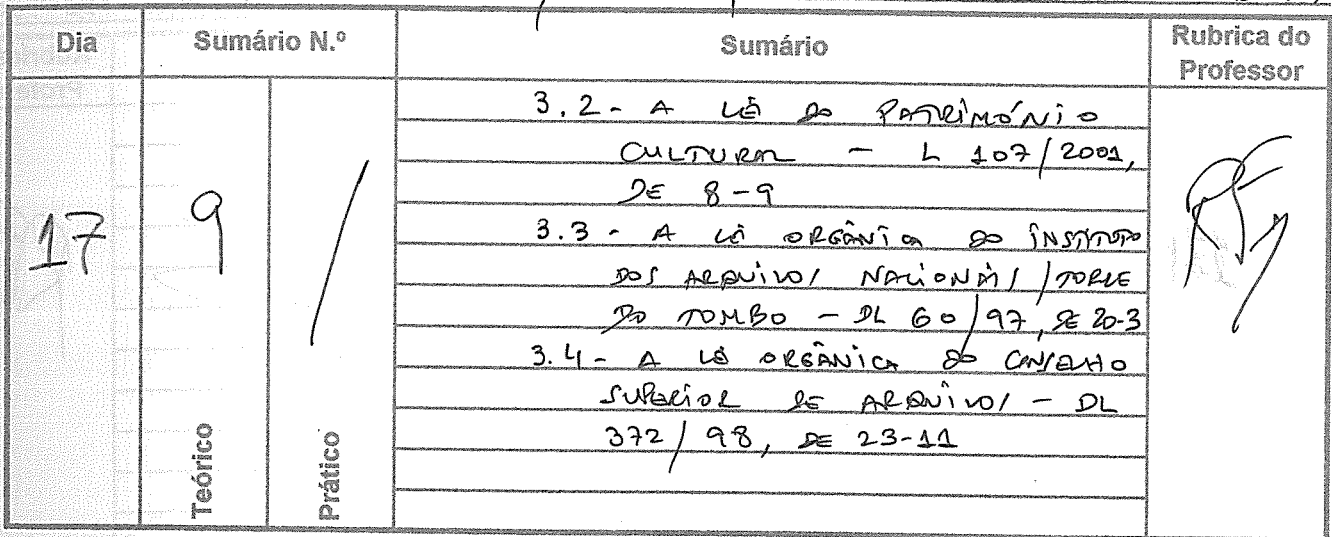 Dia
Sumário N.º
Sumário
Rubrica do
Professor
17
9
/
Teórico
Prático
3.2 - A LEI DO PATRIMÓNIO
CULTURAL - L 107/2001,
DE 8-9
3.3 - A LEI ORGÂNICA DO INSTITUTO
DOS ARQUIVOS NACIONAIS/TORRE
DO TOMBO - DL 60/97, DE 20-3
3.4 - A LEI ORGÂNICA DO CONSELHO
SUPERIOR DE ARQUIVOS - DL
372/98, DE 23-11